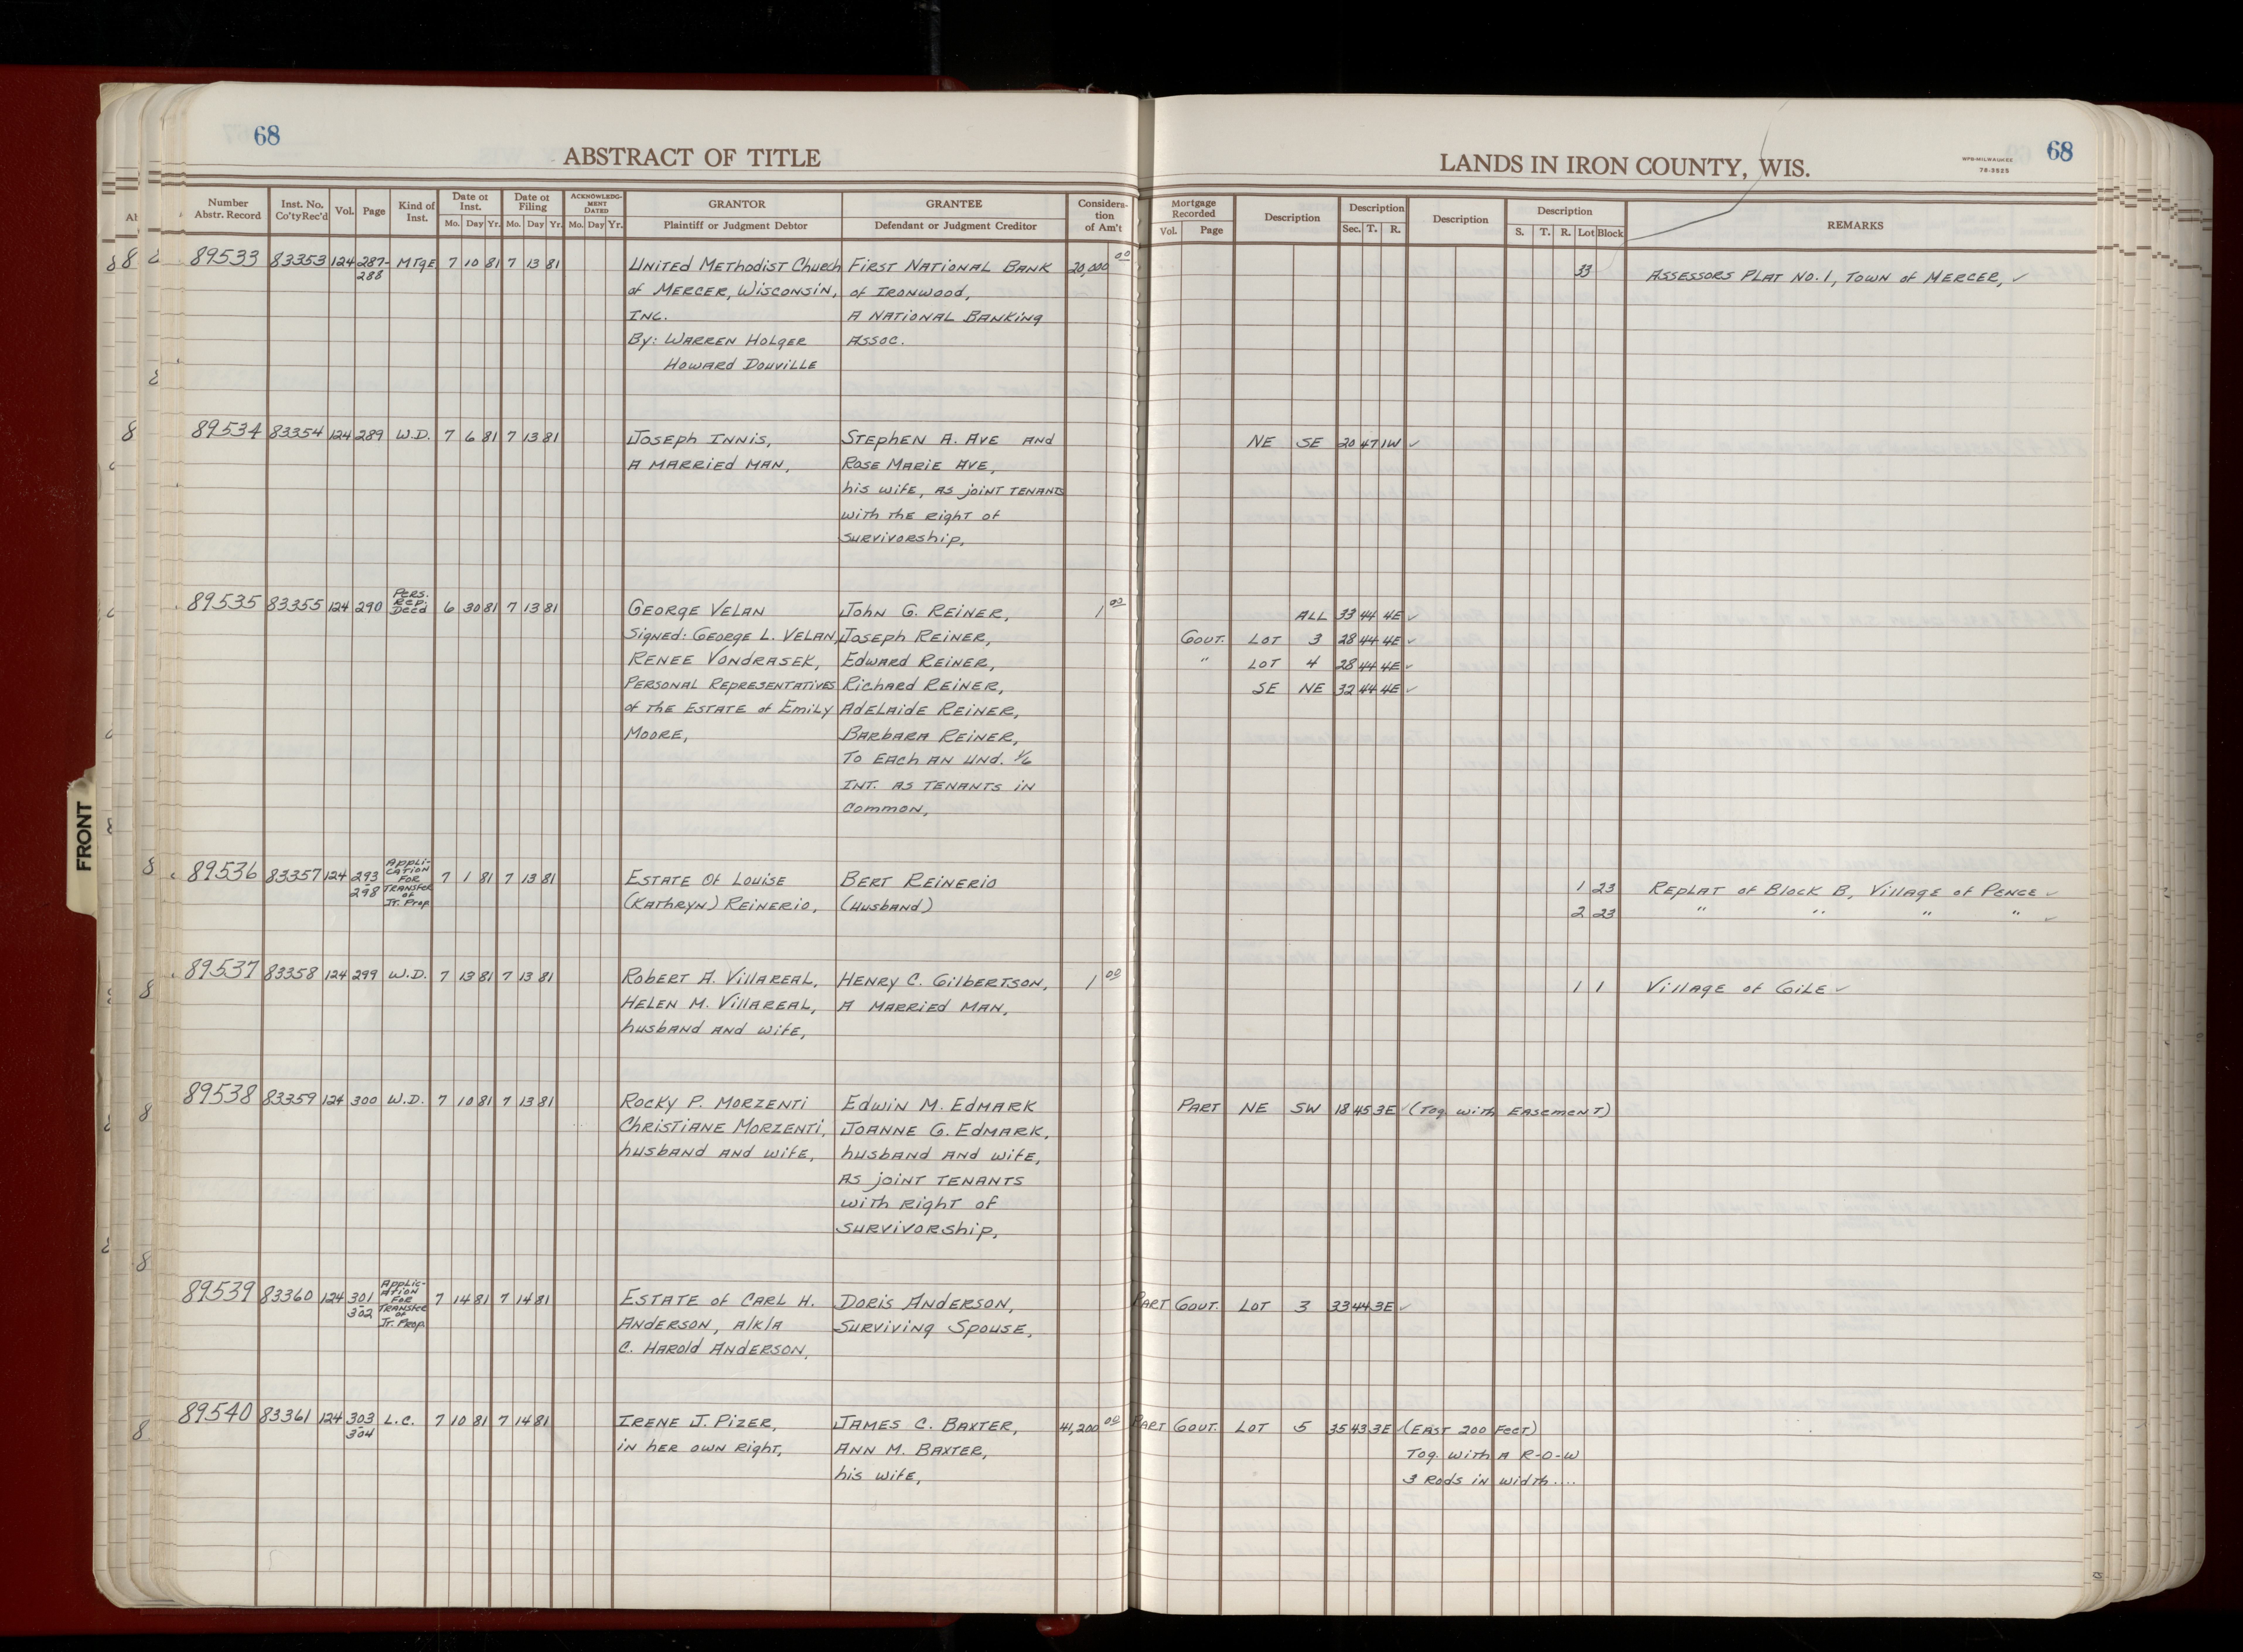 68
ABSTRACT OF TITLE
Number Abstr. Record
Inst. No. Co'tyRec'd
Vol.
Page
Kind of Inst.
Date of Inst.
Mo. Day Yr.
Date of Filing
Mo. Day Yr.
ACKNOWLEDGMENT DATED
Mo. Day Yr.
GRANTOR
Plaintiff or Judgment Debtor
GRANTEE
Defendant or Judgment Creditor
Consideration of Am't
89533 83353 124 287-288 MTGE 7 10 81 7 13 81
UNITED METHODIST CHURCH
of MERCER, WISCONSIN,
INC.
By: WARREN HOLGER
HOWARD DOUVILLE
FIRST NATIONAL BANK
of IRONWOOD,
A NATIONAL BANKING
ASSOC.
20,000 00
89534 83354 124 289 W.D. 7 6 81 7 13 81
JOSEPH INNIS,
A MARRIED MAN,
STEPHEN A. AVE AND
ROSE MARIE AVE,
his wife, AS joint TENANTS
with the right of
survivorship,
89535 83355 124 290 Pers. Rep. Deed 6 30 81 7 13 81
GEORGE VELAN
Signed: GEORGE L. VELAN,
RENEE VONDRASEK,
PERSONAL REPRESENTATIVES
of the ESTATE of Emily
MOORE,
John G. REINER,
Joseph REINER,
Edward REINER,
Richard REINER,
ADELAIDE REINER,
BARBARA REINER,
To EACH AN UND. 1/6
INT. AS TENANTS IN
Common,
1 00
89536 83357 124 293-298 APPLICATION FOR TRANSFER of Jt. Prop. 7 1 81 7 13 81
ESTATE Of Louise
(KATHRYN) REINERIO,
BERT REINERIO
(HUSBAND)
89537 83358 124 299 W.D. 7 13 81 7 13 81
ROBERT A. VILLAREAL,
HELEN M. VILLAREAL,
husband AND wife,
HENRY C. GILBERTSON,
A MARRIED MAN,
1 00
89538 83359 124 300 W.D. 7 10 81 7 13 81
ROCKY P. MORZENTI
CHRISTIANE MORZENTI,
husband AND wife,
EDWIN M. EDMARK
JOANNE G. EDMARK,
husband AND wife,
AS joint TENANTS
with right of
survivorship,
89539 83360 124 301-302 APPLICATION FOR TRANSFER of Jt. Prop. 7 14 81 7 14 81
ESTATE of CARL H.
ANDERSON, A/K/A
C. HAROLD ANDERSON,
DORIS ANDERSON,
SURVIVING SPOUSE,
89540 83361 124 303-304 L.C. 7 10 81 7 14 81
IRENE J. PIZER,
in her own right,
JAMES C. BAXTER,
ANN M. BAXTER,
his wife,
41,200 00
FRONT
LANDS IN IRON COUNTY, WIS.
WPB-MILWAUKEE
78-3525
68
Mortgage Recorded
Vol. Page
Description
Description
Sec. T. R.
Description
Description
S. T. R. Lot Block
REMARKS
33 ASSESSORS PLAT NO. 1, TOWN of MERCER, ✓
NE SE 20 47 1W ✓
ALL 33 44 4E ✓
GOVT. LOT 3 28 44 4E ✓
" LOT 4 28 44 4E ✓
SE NE 32 44 4E ✓
1 23 REPLAT of Block B, Village of PENCE ✓
2 23 " " " " ✓
1 1 Village of GILE ✓
PART NE SW 18 45 3E ✓ (Tog. with EASEMENT)
PART GOVT. LOT 3 33 44 3E ✓
PART GOVT. LOT 5 35 43 3E ✓ (EAST 200 FEET)
Tog. with A R-O-W
3 Rods in width....